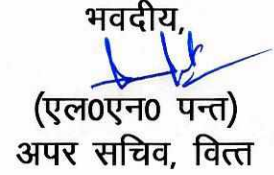 भवदीय,
(एल0एन0 पन्त)
अपर सचिव, वित्त